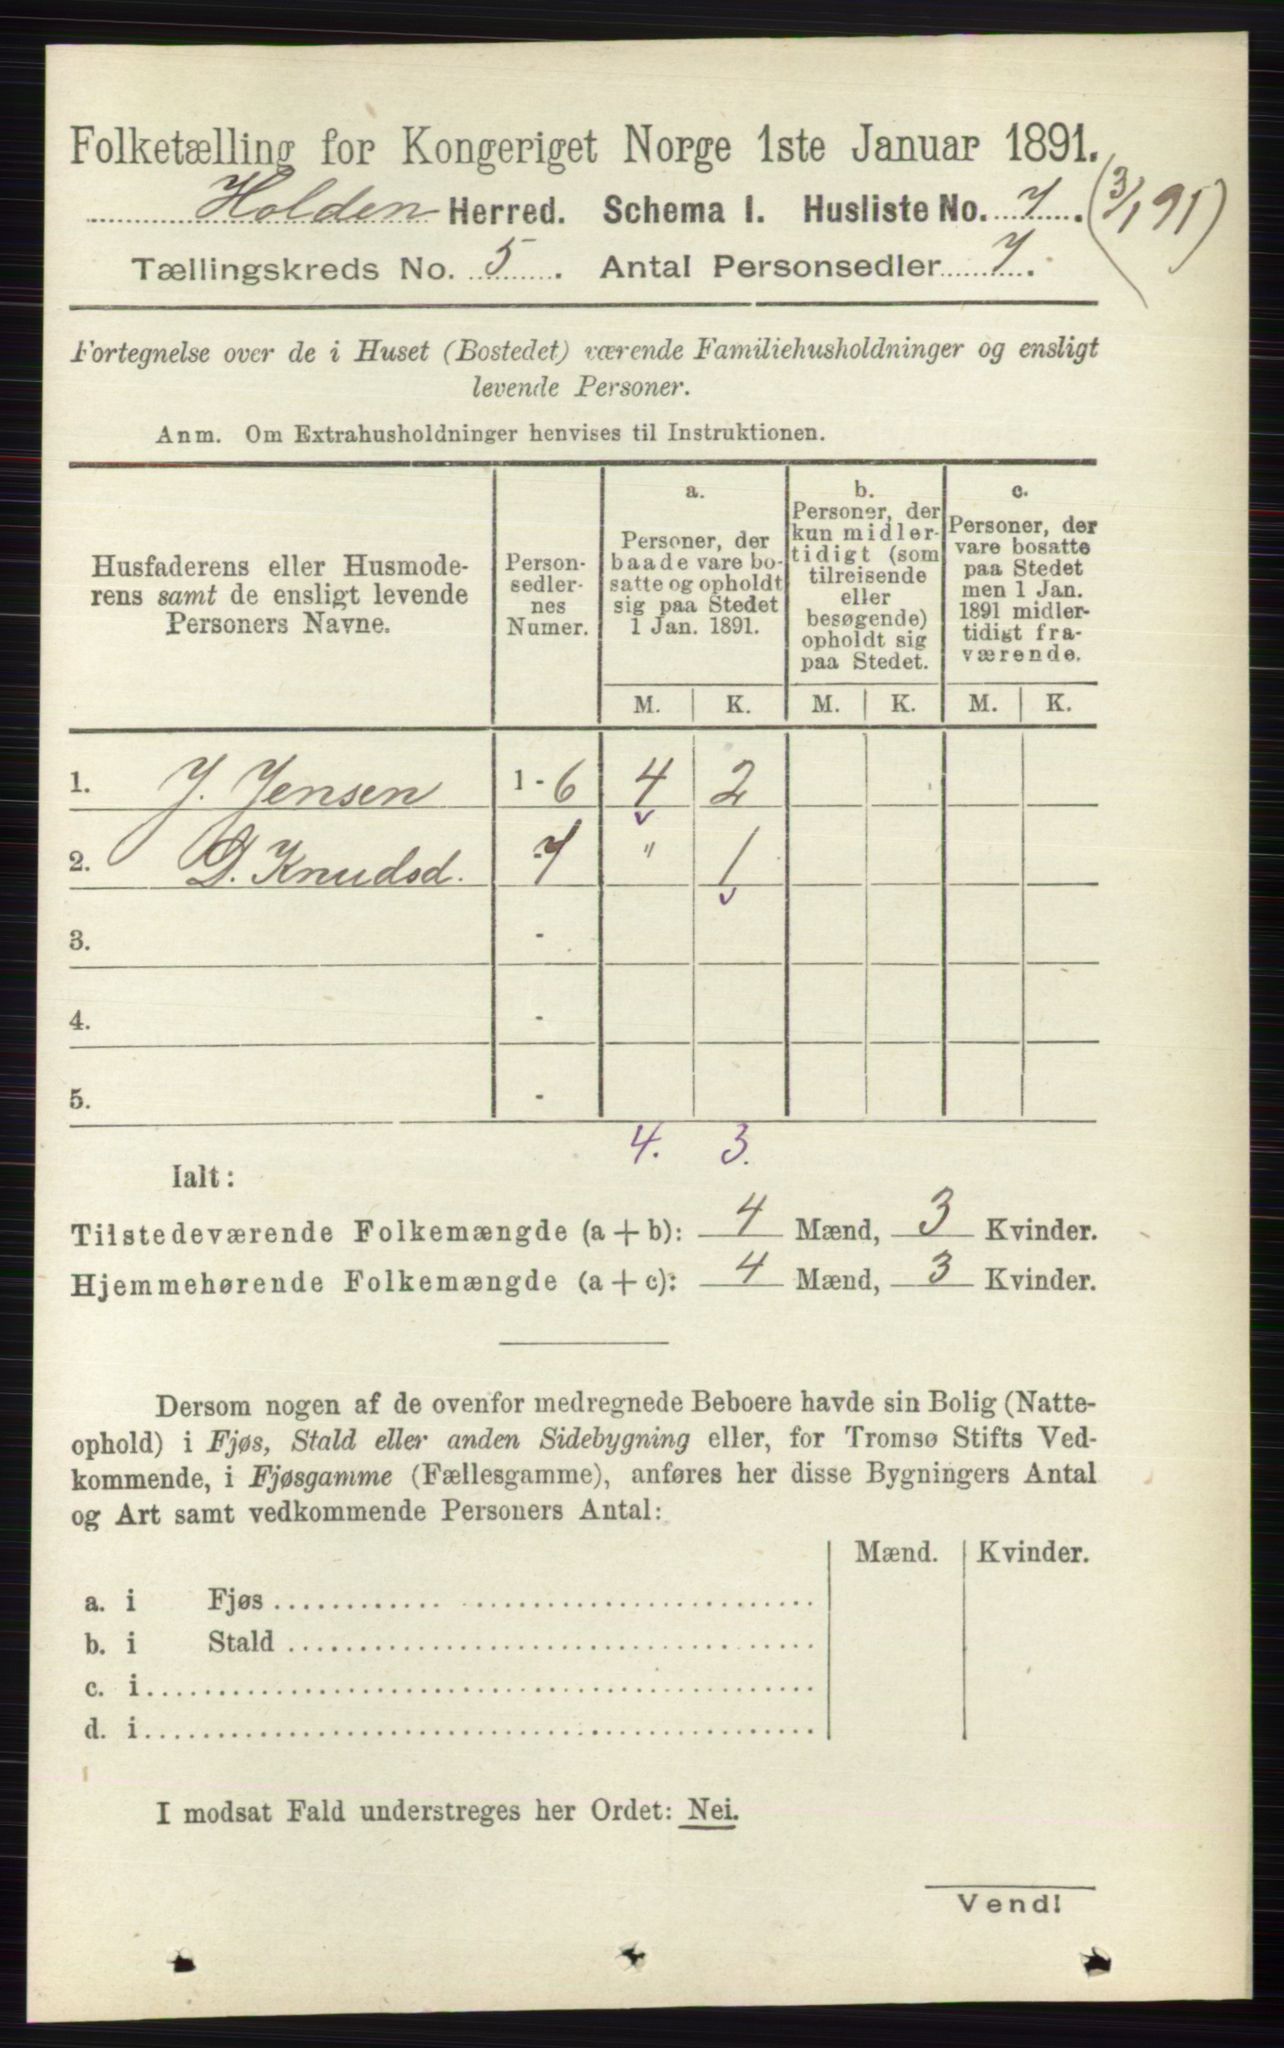 Folketælling for Kongeriget Norge 1ste Januar 1891.
Holden Herred. Schema I. Husliste No. 7. (3/1 91)
Tællingskreds No. 5. Antal Personsedler 7.
Fortegnelse over de i Huset (Bostedet) værende Familiehusholdninger og ensligt
levende Personer.
Anm. Om Extrahusholdninger henvises til Instruktionen.
Husfaderens eller Husmode-
rens samt de ensligt levende
Personers Navne.
Person-
sedler-
nes
Numer.
a.
Personer, der
baade vare bo-
satte og opholdt
sig paa Stedet
1 Jan. 1891.
b.
Personer, der
kun midler-
tidigt (som
tilreisende
eller
besøgende)
opholdt sig
paa Stedet.
c.
Personer, der
vare bosatte
paa Stedet
men 1 Jan.
1891 midler-
tidigt fra-
værende.
M. K. M. K. M. K.
1. J. Jensen 1 - 6 4 2
2. D. Knudsd. 7 " 1
3. -
4. -
5. -
4. 3.
Ialt:
Tilstedeværende Folkemængde (a + b): 4 Mænd, 3 Kvinder.
Hjemmehørende Folkemængde (a + c): 4 Mænd, 3 Kvinder.
Dersom nogen af de ovenfor medregnede Beboere havde sin Bolig (Natte-
ophold) i Fjøs, Stald eller anden Sidebygning eller, for Tromsø Stifts Ved-
kommende, i Fjøsgamme (Fællesgamme), anføres her disse Bygningers Antal
og Art samt vedkommende Personers Antal:
Mænd. Kvinder.
a. i Fjøs
b. i Stald
c. i
d. i
I modsat Fald understreges her Ordet: Nei.
Vend!